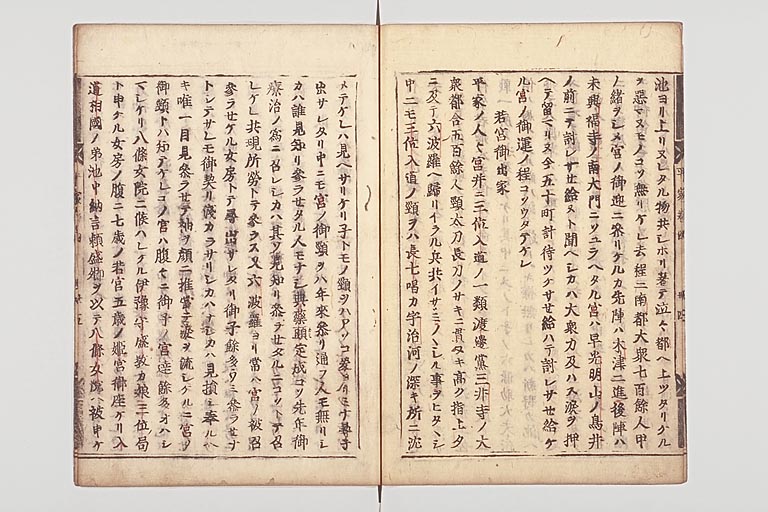 池ヨリ上リヌレタル物共シホリ著テ泣々都ヘ上ツタリケル
ヲ惡マヌモノコソ無リケレ去程ニ南都大衆七百餘人甲
ノ緒ヲシメ宮ノ御迎ニ參リケルカ先陣ハ木津ニ進後陣ハ
未興福寺ノ南大門ニソユラヘタル宮ハ早光明山ノ鳥井
ノ前ニテ討レサセ給ヌト聞ヘシカハ大衆力及ハス涙ヲ押
ヘテ留マリヌ今五十町計待ツケサセ給ハテ討レサセ給ケ
ル宮ノ御運ノ程コソウタテケレ
若宮御出家
平家ノ人々宮并ニ三位入道ノ一類渡邊黨三井寺ノ大
衆都合五百餘人頸太刀長刀ノサキニ貫ヌキ高ク指上夕
ニ及テ六波羅ヘ歸リイラル兵共イサミノヽシル事ヲヒタヽシ
中ニモ三位入道ノ頸ヲハ長七唱カ宇治河ノ深キ所ニ沈
メテケレハ見ヘサリケリ子トモノ頸ヲハアソコ爰ヨリミナ尋子
出サレタリ中ニモ宮ノ御頸ヲハ年來參リ通フ人モ無リシ
カハ誰見知リ參ラセタル人モナシ典藥頭定成コソ先年御
療治ノ爲ニ召レシカハ其ソ見知リ參ラセタルラントテ召
レケレ共現所勞トテ參ラス又六波羅ヨリ常ヘ宮ノ被召
參ラセケル女房トテ尋出サレタリ御子餘多ウミ參ラセナ
トシテサレモ御契リ淺カラサリシカハナシカハ見損シ奉ルヘ
キ唯一目見參ラセテ袖ヲ顏ニ推當テ涙ヲ流シケルニ宮ノ
御頸トハ知テケレコノ宮ハ腹々ニ御子ノ宮達餘多オハシ
マシケリ八條女院ニ候ハレケル伊豫守盛教カ娘三位局
ト申ケル女房ノ腹ニ七歳ノ若宮五歳ノ姫宮御座ケリ入
道相國ノ弟池中納言頼盛卿ヲ以テ八條女院ヘ被申ケ